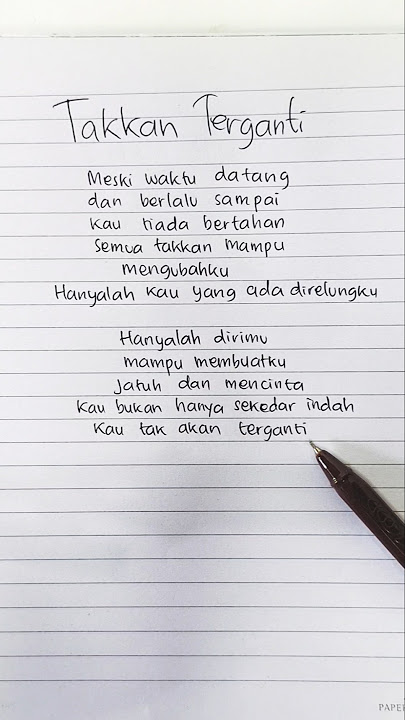 Takkan Terganti
Meski waktu datang
dan berlalu sampai
kau tiada bertahan
Semua takkan mampu
mengubahku
Hanyalah kau yang ada direlungku
Hanyalah dirimu
mampu membuatku
Jatuh dan mencinta
Kau bukan hanya sekedar indah
Kau tak akan terganti
PAPER